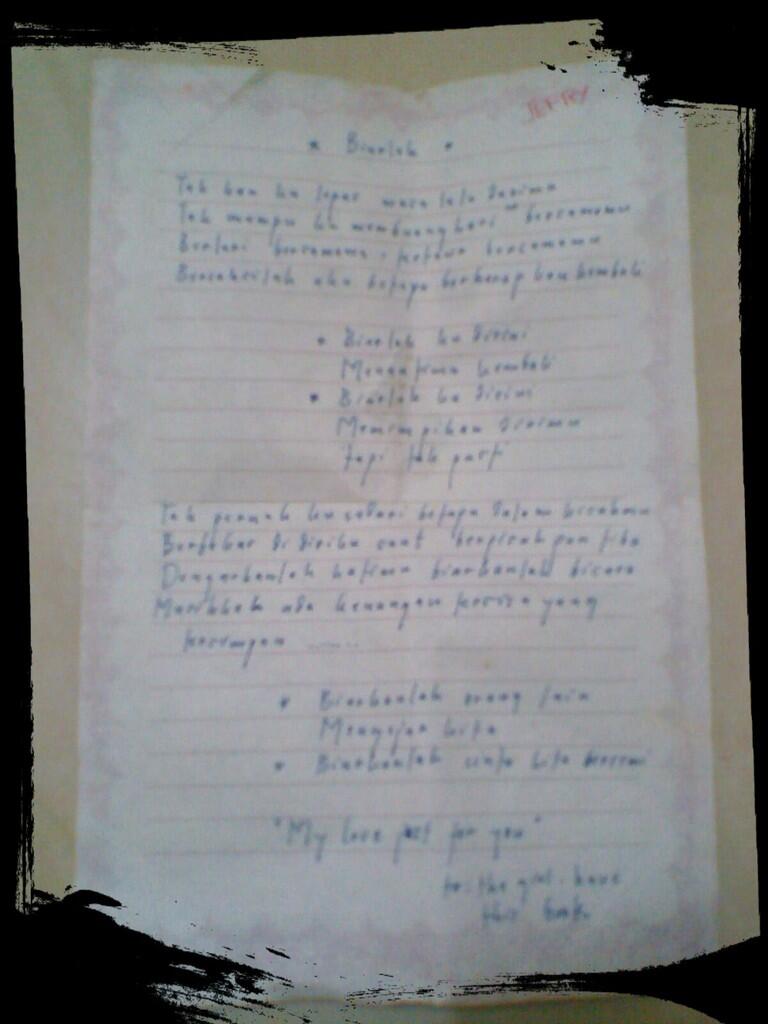 JEFRY
* Biarlah *
Tak kan ku lepas masa lalu darimu
Tak mampu ku membuang hari" bersamamu
Berlari bersamamu, tertawa bersamamu
aku betapa berharap kau kembali
* Biarlah ku disini
Menantimu kembali
* Biarlah ku disini
Memimpikan dirimu
Tapi tak pasti
Tak pernah ku sadari betapa dalam
di diriku saat berpisah pun tiba
Dengarkanlah hatimu biarkanlah bicara
ada kenangan tersisa yang
tersimpan ........
* Biarkanlah orang lain
Mengejar kita
* Biarkanlah cinta kita bersemi
"My love just for you"
to: the girl have
this book.